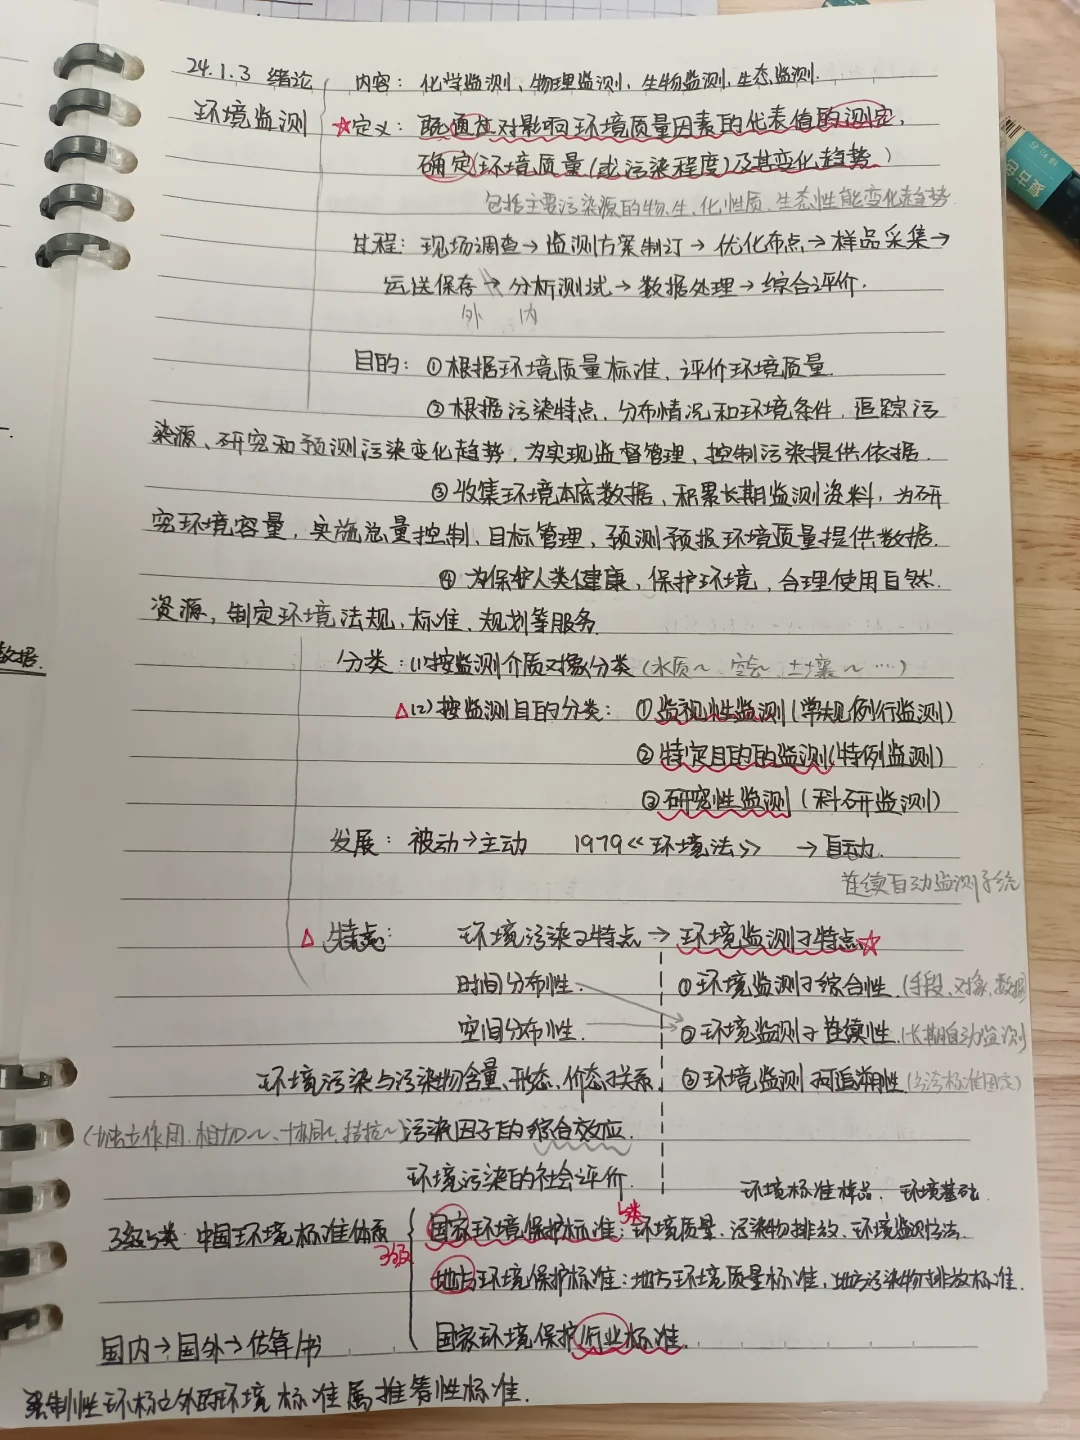 24.1.3 绪论 内容：化学监测、物理监测、生物监测、生态监测.
环境监测 ☆定义：通过对影响环境质量因素的代表值的测定，
确定(环境质量(或污染程度)及其变化趋势)
包括主要污染源的物、生、化性质、生态性能变化趋势
过程：现场调查→监测方案制订→优化布点→样品采集→
运送保存→分析测试→数据处理→综合评价.
外 内
目的：①根据环境质量标准、评价环境质量.
②根据污染特点、分布情况和环境条件，追踪污
染源、研究和预测污染变化趋势，为实现监督管理、控制污染提供依据.
③收集环境本底数据，积累长期监测资料，为研
究环境容量，实施总量控制、目标管理、预测预报环境质量提供数据.
④为保护人类健康、保护环境，合理使用自然
资源，制定环境法规、标准、规划等服务.
数据.
分类：(1)按监测介质对象分类(水质~、空气~、土壤~…)
△(2)按监测目的分类：①监视性监测(常规例行监测)
②特定目的的监测(特例监测)
③研究性监测(科研监测)
发展：被动→主动 1979《环境法》 →自动.
连续自动监测系统
△特点： 环境污染了特点→环境监测了特点☆
时间分布性. ①环境监测了综合性.(手段、对象、数据)
空间分布性. ②环境监测了连续性.(长期自动监测)
环境污染与污染物含量、形态、价态了关系. ③环境监测可追溯性
(独立作用、相加~、协同~、拮抗~)污染因子的综合效应.
环境污染的社会评价.
环境标准样品、环境基础.
5类
3级5类 中国环境标准体系 国家环境保护标准：环境质量、污染物排放、环境监测方法.
3级
地方环境保护标准：地方环境质量标准，地方污染物排放标准.
国内→国外→估算/书 国家环境保护行业标准.
强制性环标之外的环境标准属推荐性标准.